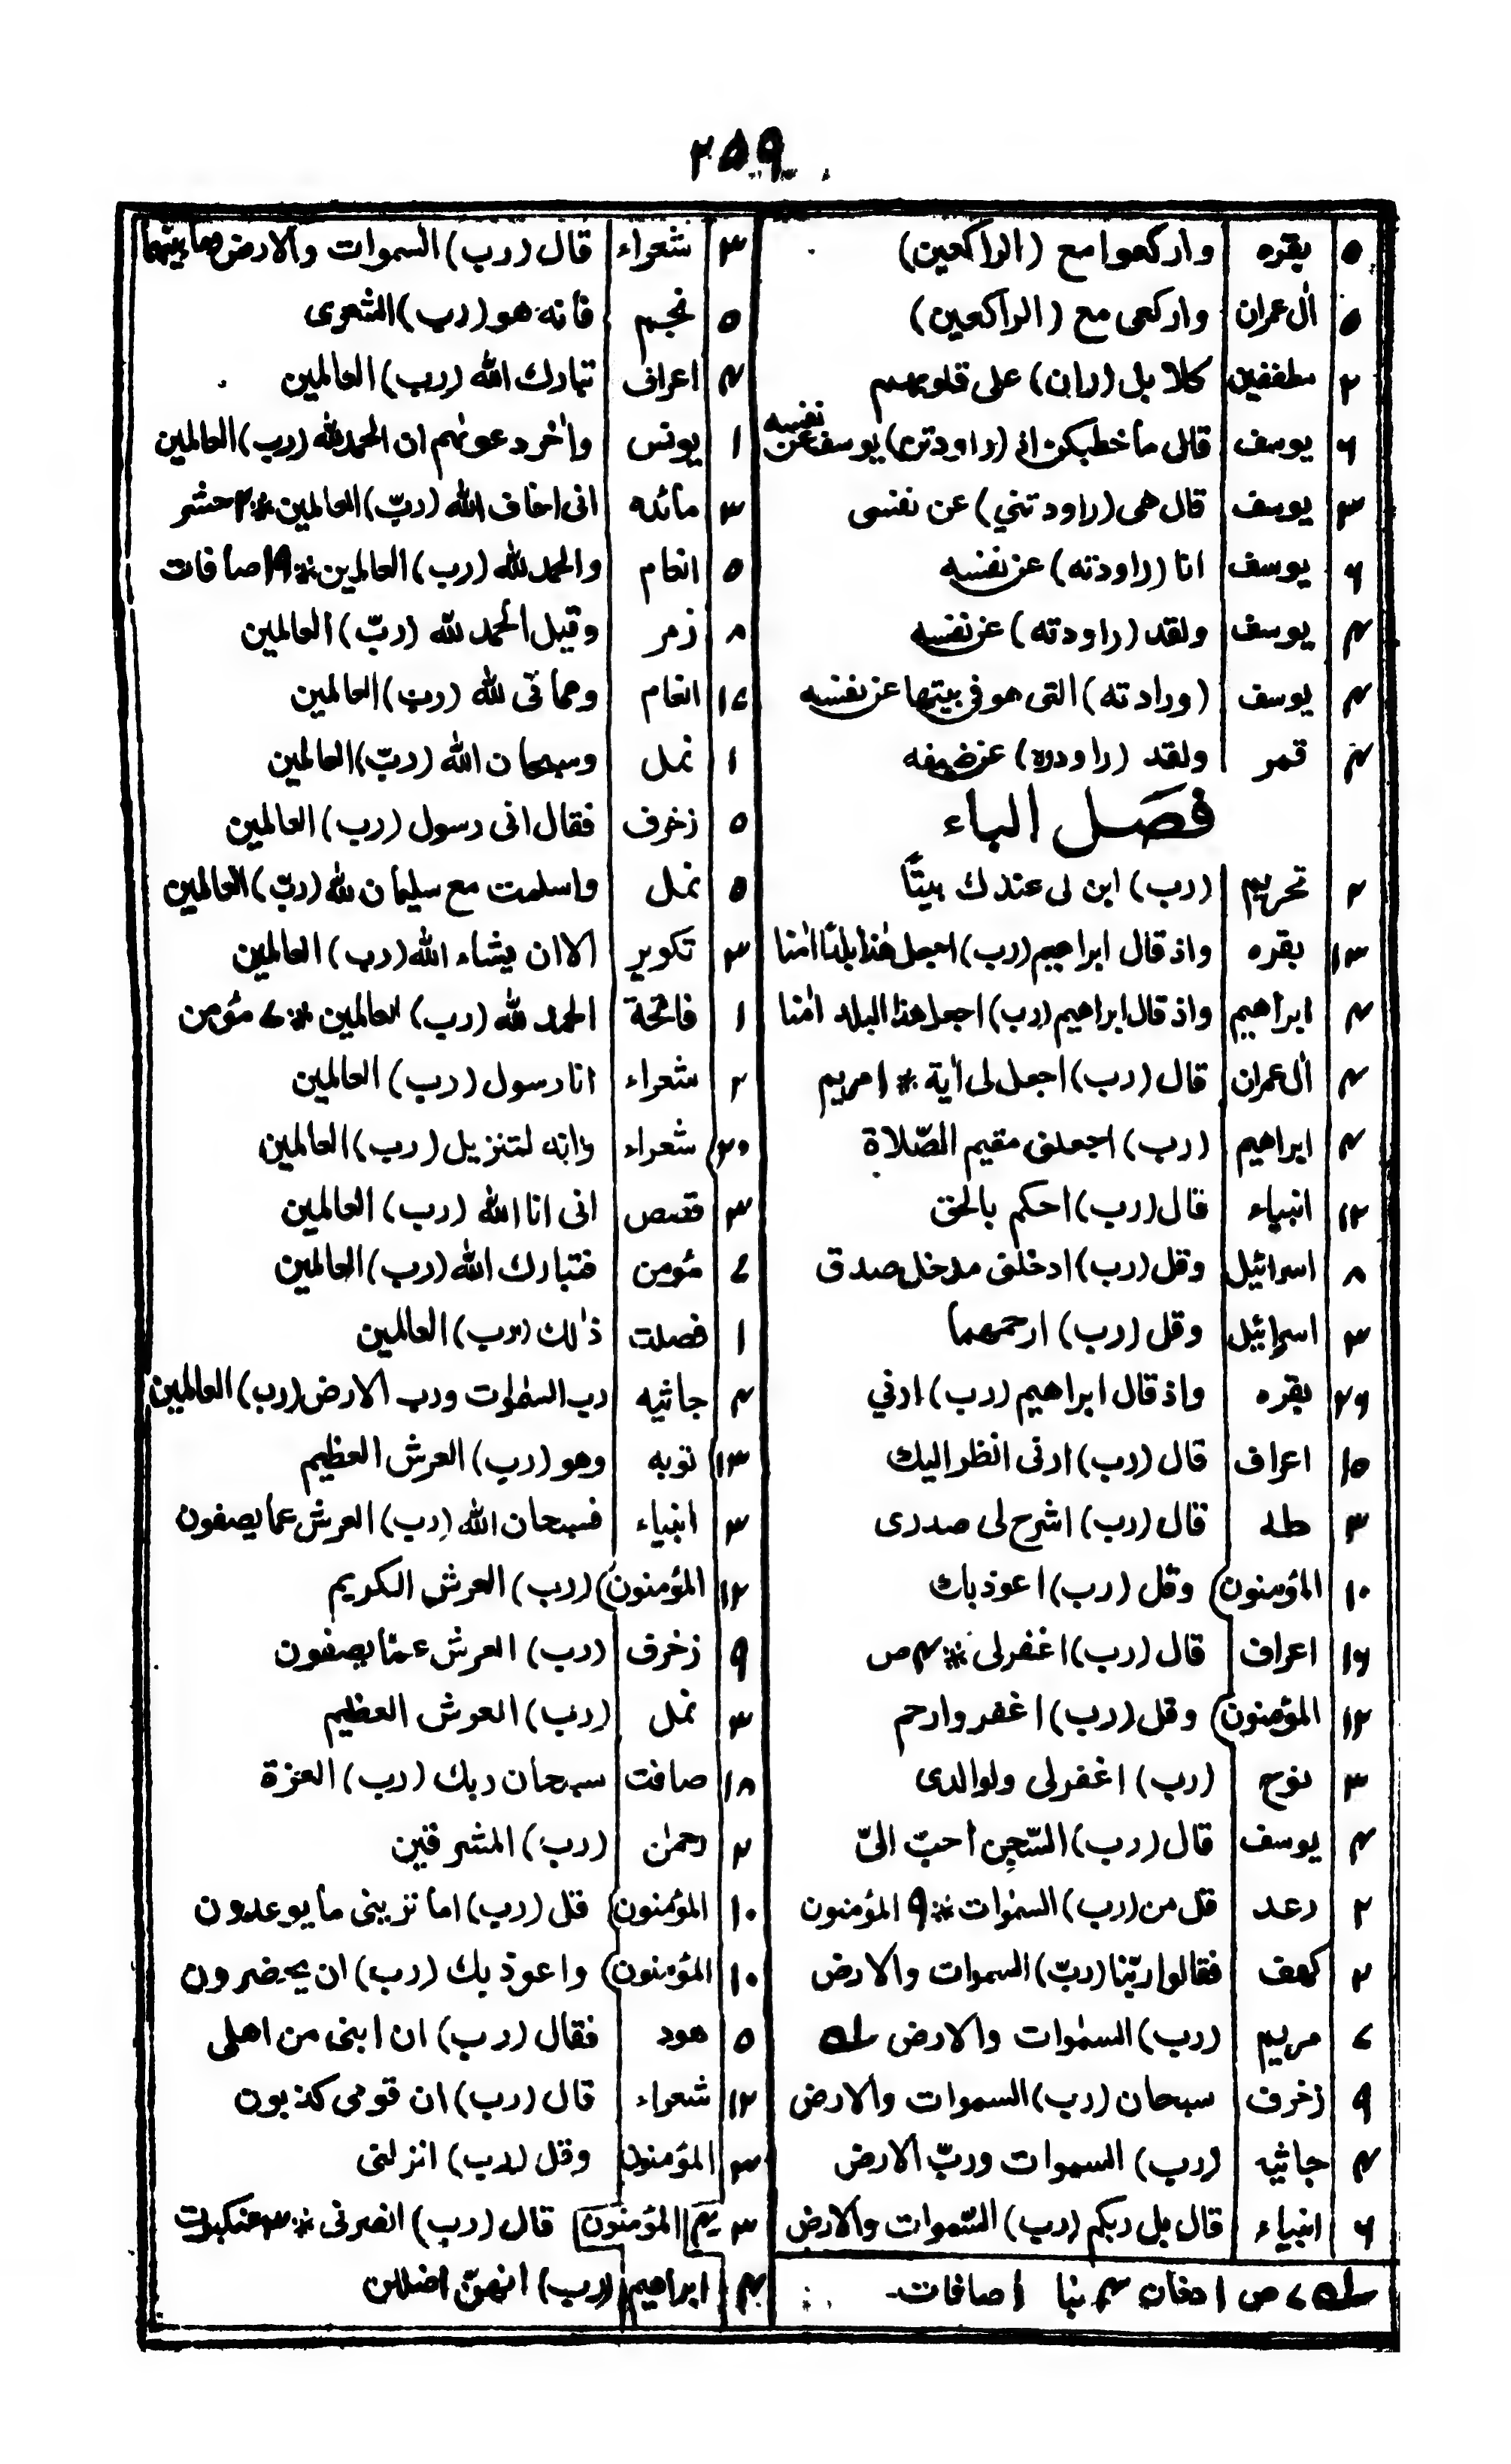 ۲۵۹
۵ بقره واركعوا مع (الراكعين)
۵ اٰل عمران واركعى مع (الراكعين)
۲ مطففين كلا بل (ران) على قلوبهم
۶ يوسف قال ما خطبكن اذ (راودتن) يوسف عن نفسه
۳ يوسف قال هى (راودتني) عن نفسى
۶ يوسف انا (راودته) عن نفسه
۴ يوسف ولقد (راودته) عن نفسه
۴ يوسف (ورادته) التى هو فى بيتها عن نفسه
۴ قمر ولقد (راودوه) عن ضيفه
فصَل الباء
۲ تحريم (رب) ابن لى عندك بيتًا
۱۳ بقره واذ قال ابراهيم (رب) اجعل هٰذا بلدًا اٰمنا
۴ ابراهيم واذ قال ابراهيم (رب) اجعل هذا البلد اٰمنا
۴ اٰل عمران قال (رب) اجعل لى اٰية * ۱ مريم
۴ ابراهيم (رب) اجعلنى مقيم الصّلاة
۱۲ انبياء قال (رب) احكم بالحق
۸ اسرائيل وقل (رب) ادخلنى مدخل صدق
۳ اسرائيل وقل (رب) ارحمهما
۲۶ بقره واذ قال ابراهيم (رب) ارني
۱۵ اعراف قال (رب) ارنى انظر اليك
۳ طه قال (رب) اشرح لى صدرى
۱۰ المؤمنون وقل (رب) اعوذ بك
۱۶ اعراف قال (رب) اغفر لى * ۴ ص
۱۲ المؤمنون وقل (رب) اغفر وارحم
۳ نوح (رب) اغفر لى ولوالدى
۴ يوسف قال (رب) السّجن احبّ الىّ
۲ رعد قل من (رب) السمٰوات * ۹ المؤمنون
۲ كهف فقالوا ربّنا (ربّ) السموات والارض
۷ مريم (رب) السمٰوات والارض
۹ زخرف سبحان (رب) السموات والارض
۴ جاثيه (رب) السموات وربّ الارض
۶ انبياء قال بل ربكم (رب) السّموات والارض
۷ ص ۱ دخان ۴ نبا ۱ صافات
۳ شعراء قال (رب) السموات والارض وما بينهما
۵ نجم فانه هو (رب) الشعرى
۷ اعراف تبارك الله (رب) العالمين
۱ يونس واٰخر دعوٰيهم ان الحمد لله (رب) العالمين
۳ مائده انى اخاف الله (ربّ) العالمين * ۲ حشر
۵ انعام والحمد لله (رب) العالمين * ۱۹ صافات
۸ زمر وقيل الحمد لله (ربّ) العالمين
۱۷ انعام ومماتى لله (رب) العالمين
۱ نمل وسبحان الله (ربّ) العالمين
۵ زخرف فقال انى رسول (رب) العالمين
۵ نمل واسلمت مع سليمان لله (ربّ) العالمين
۳ تكوير الا ان يشاء الله (رب) العالمين
۱ فاتحة الحمد لله (رب) العالمين * ۷ مؤمن
۲ شعراء انا رسول (رب) العالمين
۲۰ شعراء وانه لتنزيل (رب) العالمين
۳ قصص انى انا الله (رب) العالمين
۷ مؤمن فتبارك الله (رب) العالمين
۱ فصلت ذٰلك (رب) العالمين
۴ جاثيه رب السمٰوات ورب الارض (رب) العالمين
۱۳ توبه وهو (رب) العرش العظيم
۳ انبياء فسبحان الله (رب) العرش عما يصفون
۱۲ المؤمنون (رب) العرش الكريم
۹ زخرف (رب) العرش عمّا يصفون
۳ نمل (رب) العرش العظيم
۱۸ صافت سبحان ربك (رب) العزة
۲ رحمٰن (رب) المشرقين
۱۰ المؤمنون قل (رب) اما ترينى ما يوعدون
۱۰ المؤمنون واعوذ بك (رب) ان يحضرون
۵ هود فقال (رب) ان ابنى من اهلى
۱۲ شعراء قال (رب) ان قومى كذبون
۳ المؤمنون وقل (رب) انزلنى
۳ المؤمنون قال (رب) انصرنى * ۳ عنكبوت
۴ ابراهيم (رب) انهنّ اضللن